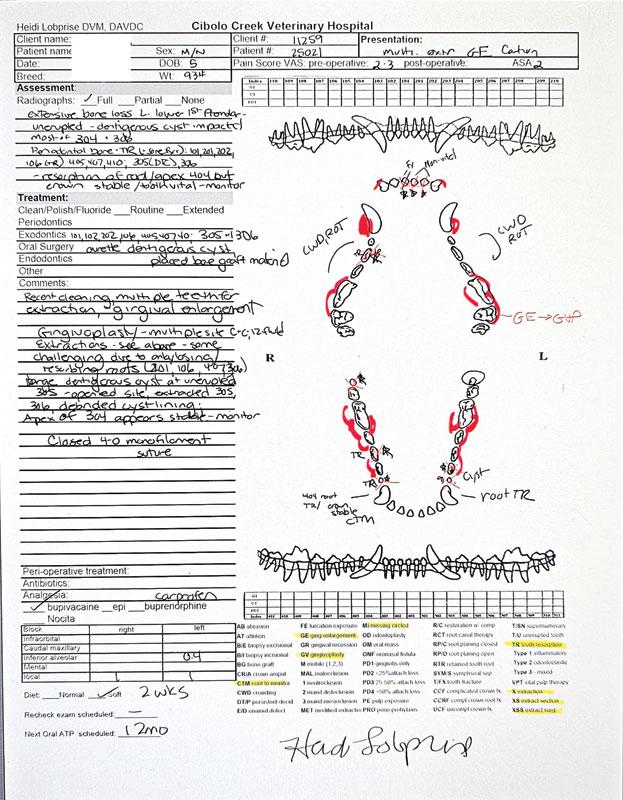 Heidi Lobprise DVM, DAVDC Cibolo Creek Veterinary Hospital
Client name: Client #: 11259 Presentation:
Patient name Sex: M/N Patient #: 25021 multi. extr GE Cation
Date: DOB: 5 Pain Score VAS: pre-operative: 2-3 post-operative: ASA 2
Breed: Wt: 93#
Assessment:
Radiographs: ✓ Full __Partial __None
extensive bone loss L. lower 1st Premolar
unerupted - dentigerous cyst impacted
most of 304 + 306
Periodontal bone - TR 101, 201, 202,
106 (TR) 405, 407, 410; 305 (DTC), 306
- resorption of root/apex 404 but
crown stable / tooth vital - monitor
Treatment:
Clean/Polish/Fluoride __Routine __Extended
Periodontics
Exodontics 101, 102, 202, 106, 405 407 40 305 + 306
Oral Surgery curette dentigerous cyst
Endodontics placed bone graft material
Other
Comments:
Recent cleaning, multiple teeth for
extraction, gingival enlargement
Gingivoplasty - multiple site C-C; 12-fluted
Extractions - see above - some
challenging due to ankylosing/
resorbing roots (201, 106, 407, 306)
Large dentigerous cyst at unerupted
305 - opened site, extracted 305,
306, debrided cyst lining;
Apex of 304 appears stable - monitor
Closed 4-0 monofilament
suture
Peri-operative treatment:
Antibiotics:
Analgesia: carprofen
✓ bupivacaine __epi __buprenorphine
Nocita
Block right left
Infraorbital
Caudal maxillary
Inferior alveolar 0.4
Mental
local
Diet: __Normal ✓ Soft 2 wks
Recheck exam scheduled: —
Next Oral ATP scheduled: 12mo
Index 110 109 108 107 106 105 104 103 102 101 201 202 203 204 205 206 207 208 209 210
CWD, ROT
CWD
ROT
GE → GVP
R L
TR
TR
Cyst
404 root
TR/ crown
stable
CTM
root TR
AB abrasion FE furcation exposure Mi missing circled R/C restoration w/ comp T/SN supernumerary
AT attrition GE ging enlargement OD odontoplasty RCT root canal therapy T/U unerupted tooth
B/E biopsy excisional GR gingival recession OM oral mass RP/C root planing closed TR tooth resorption
B/I biopsy incisional GV gingivoplasty ONF oronasal fistula RP/O root planing open Type 1 inflammatory
BG bone graft M mobile (1,2,3) PD1 gingivitis only RTR retained tooth root Type 2 odontoclastic
CR/A crown amput MAL malocclusion PD2 <25% attach loss SYM/S symphyseal sep Type 3 - mixed
CTM cont to monitor 1 neutroclusion PD3 25-50% attach loss T/FX tooth fracture VPT vital pulp therapy
CWD crowding 2 mand distoclusion PD4 >50% attach loss CCF complicated crown fx X extraction
DT/P persistent decid 3 mand mesioclusion PE pulp exposure CCRF compl crown root fx XS extract section
E/D enamel defect MET modified extract PRO pono prophylaxis UCF uncompl crown fx XSS extract surg
Heidi Lobprise